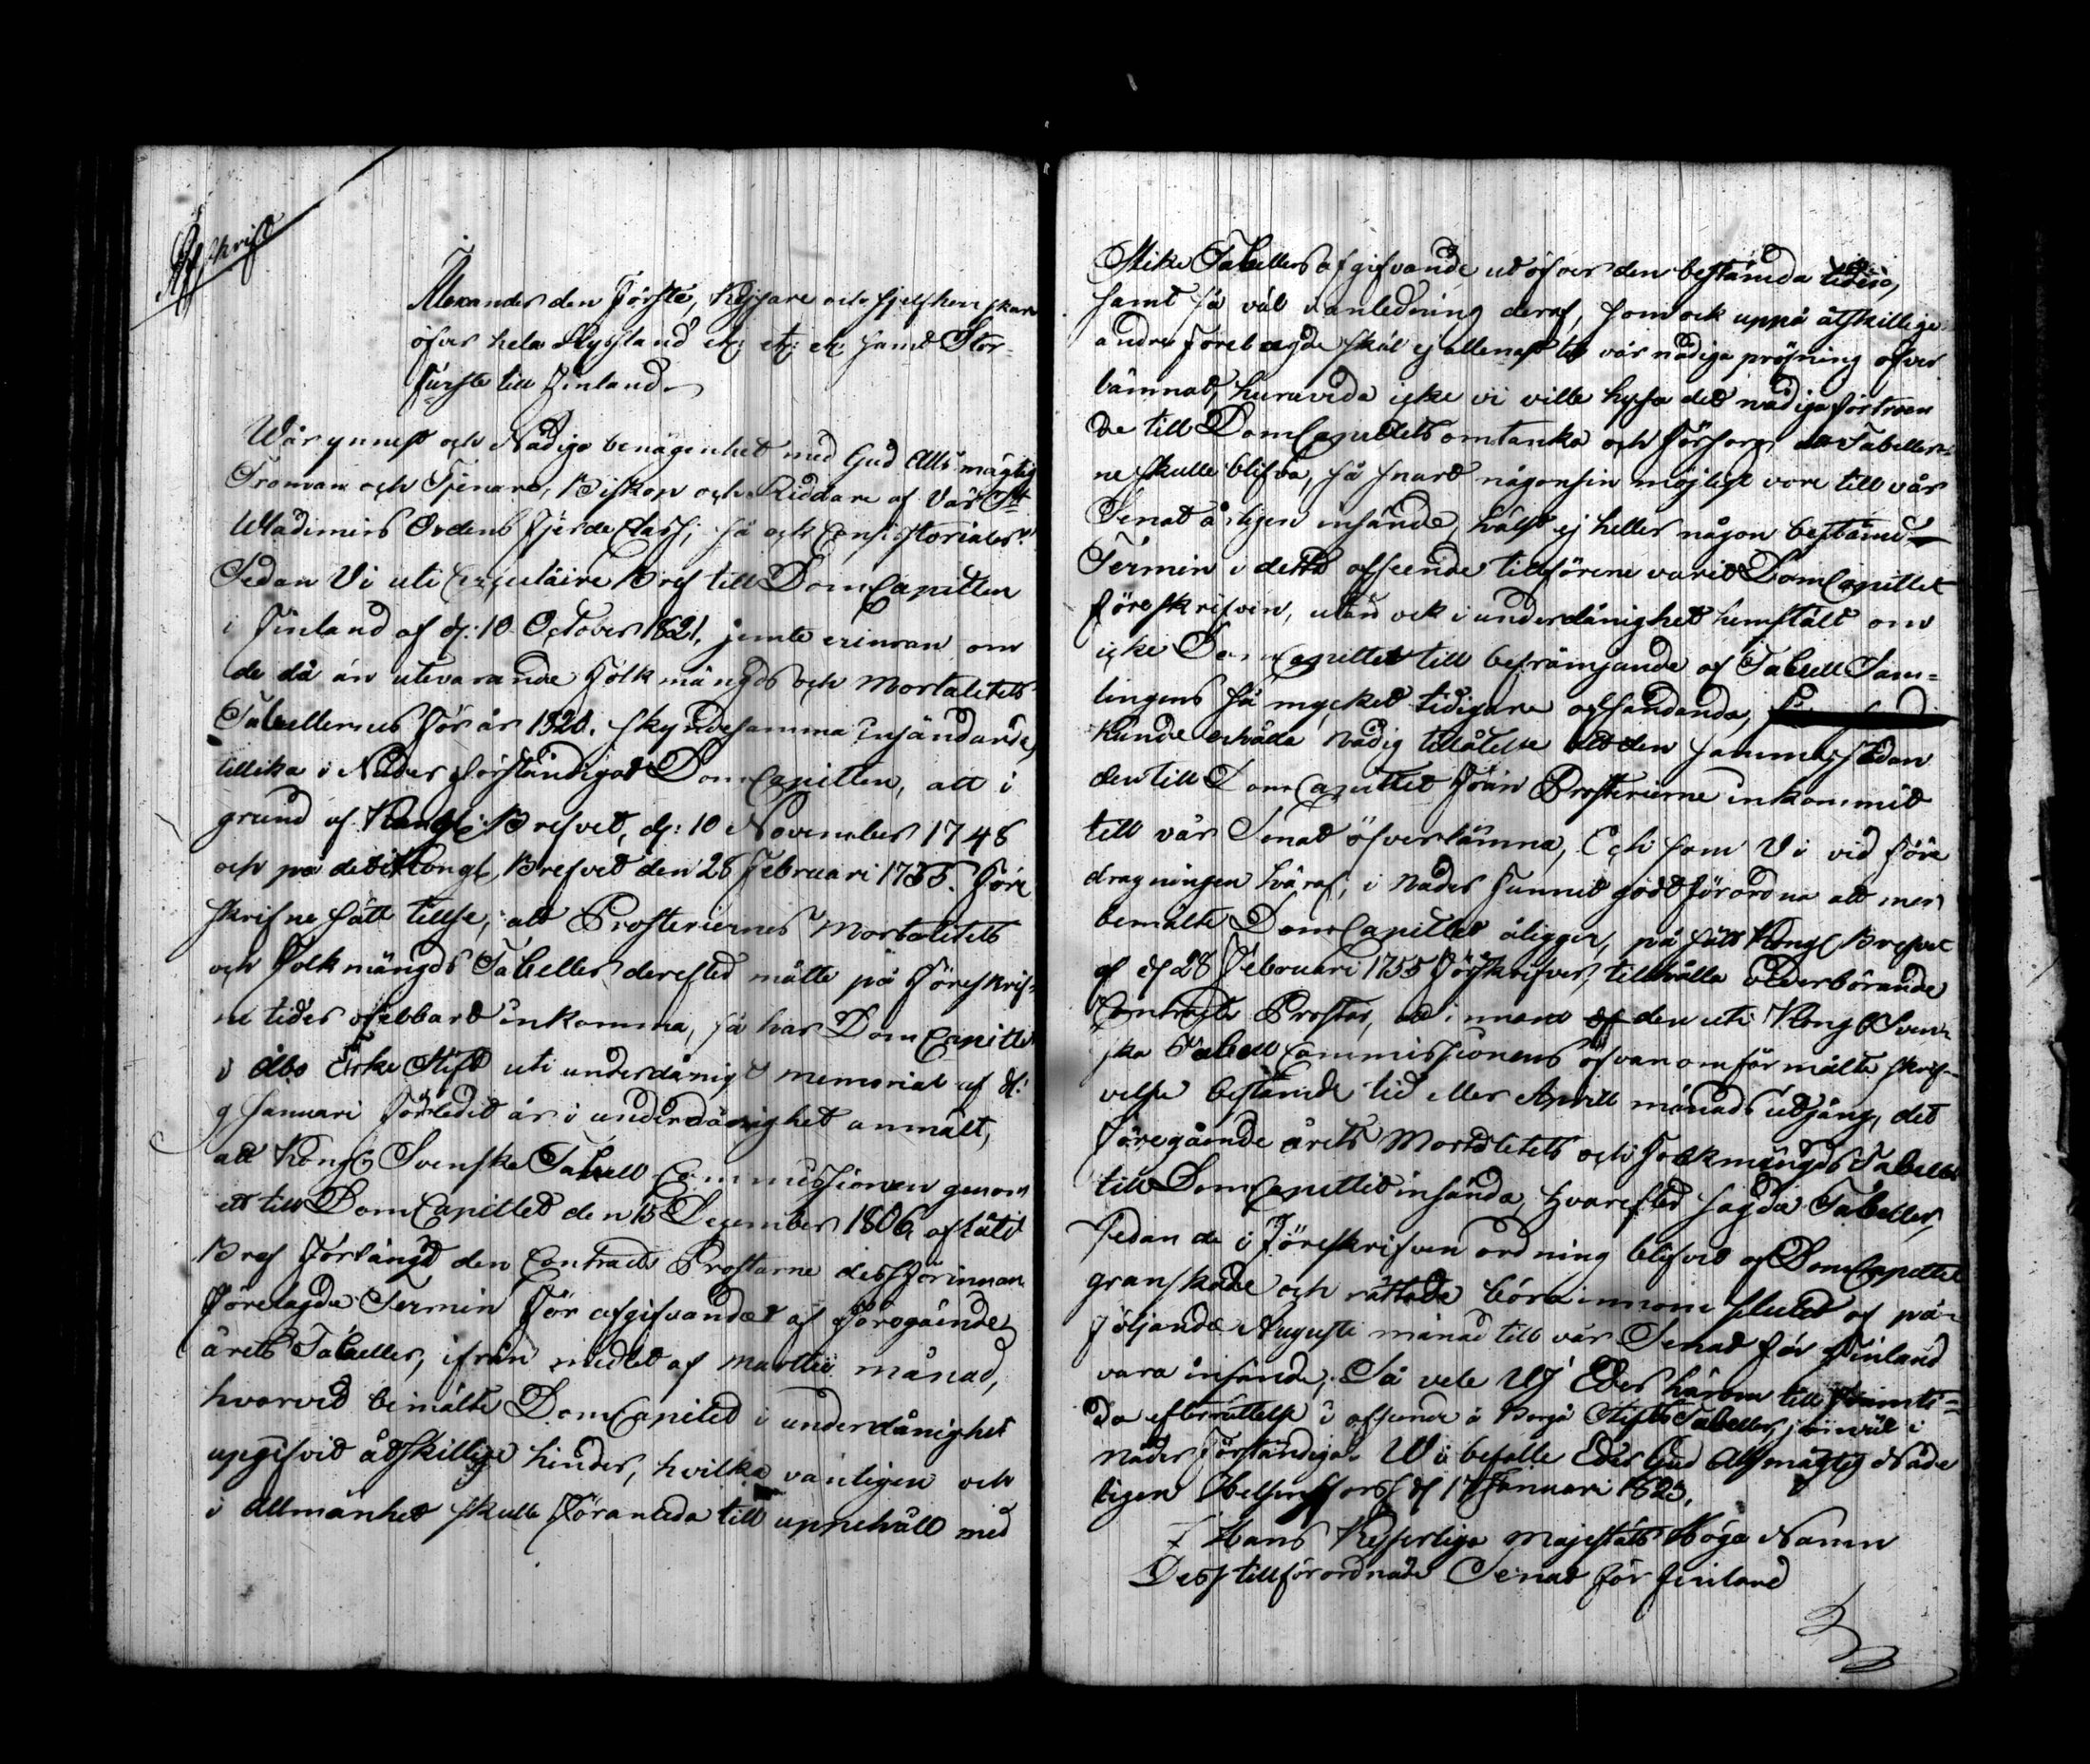 Afskrift
Alexander den Förste, Kejsare och sjelfherrskare
öfver hela Ryssland etc: etc: etc: samt Stor-
Furste till Finland
Wår ynnest och Nådiga benägenhet med Gud Allsmägtig
Troman och Tjenare, Biskop och Riddare af Vår St
Wladimirs Ordens fjerde Class; så och Consistorialer!
Sedan Vi uti Circulaire Bref till DomCapitlen
i Finland af d: 10 October 1821, jemte erinran om
de då än utevarande Folkmängds och Mortalitets
Tabellernes för år 1820. skyndesamma insändande,
tillika i Nåder förständigat DomCapitlen, att i
grund af Kongl: Brefvet, d: 10 November 1748
och på det i Kongl Brefvet den 28 Februari 1755. före
skrifne sätt tillse, att Prosteriernes Mortalitets
och Folkmängds Tabeller derefter måtte på föreskrif-
ne tider ofelbart inkomma, så har DomCapitlet
i Åbo ErkeStift uti underdånigt memorial af d:
9 Januari förledit år i underdånighet anmält,
att Kongl Svenska Tabell Commissionen genom
ett till DomCapitlet den 15 December 1806 aflåtit
Bref förlängt den Contracts Prostarne dessförinnan
förelagde Termin för afgifvandet af föregående
årets Tabeller, ifrån medlet af Martii månad,
hvarvid bemälte DomCapitel i underdånighet
upgifvit åtskillige hinder, hvilka vanligen och
i Allmänhet skulle föranleda till uppehåll med
slike Tabellers afgifvande utöfver den bestämda tiden,
samt så väl i anledning deraf, som ock uppå åtskillige
andra förebragde skäl ej allenast till vår nådiga pröfning öfver
lämnat, huruvida icke vi ville hysa det nådiga förtroen
de till DomCapitlets omtanka och försorg att Tabeller-
ne skulle blifva, så snart någonsin möjligt vore till vår
Senat årligen insände, hälst ej heller någon bestämd
Termin i detta afseende tillförene varit DomCapitlet
föreskrifven, utan ock i underdånighet hemstält om
icke DomCapitlet till befrämjande af Tabell Sam-
lingens så mycket tidigare afsändande,
kunde erhålla Nådig tillåtelse att den samma, sedan
den till DomCapitlet från Prosterierne inkommit
till vår Senat öfverlämna, Och som Vi vid före
dragningen häraf, i Nåder funnit godt förordna att mer
bemälte DomCapitlet åligger, på sätt Kongl Brefvet
af d 28 Februari 1755 föreskrifver, tillhålla vederbörande
Contracts Prostar, att innom den uti Kongl Sven-
ska Tabell Commissionens ofvan omförmälte skrif-
velse bestämde tid eller Aprill månads utgång, det
föregående årets Mortalitets och Folkmängds Tabeller
till DomCapitlet insända, hvarefter sagda Tabeller,
sedan de i föreskrifven ordning blifvit af DomCapitlet
granskade och rättade böra innom slutet af på-
följande Augusti månad till vår Senat för Finland
vara insände; Så vele Wi Eder härom till framti-
da efterrättelse i afseende å Borgå Stifts Tabeller, jemväl i
nåder förständiga. Wi befalle Eder Gud Allsmägtig Nåde
ligen Helsingfors d 17 Januari 1823.
I Hans Kejserliga Majestäts Höga Namn
Dess tillförordnade Senat för Finland